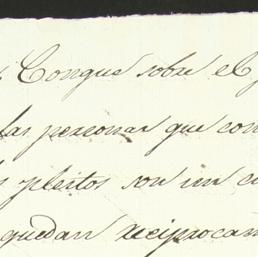 Conque sobre el
las personas que con
pleitos son un c
quedan reciprocam